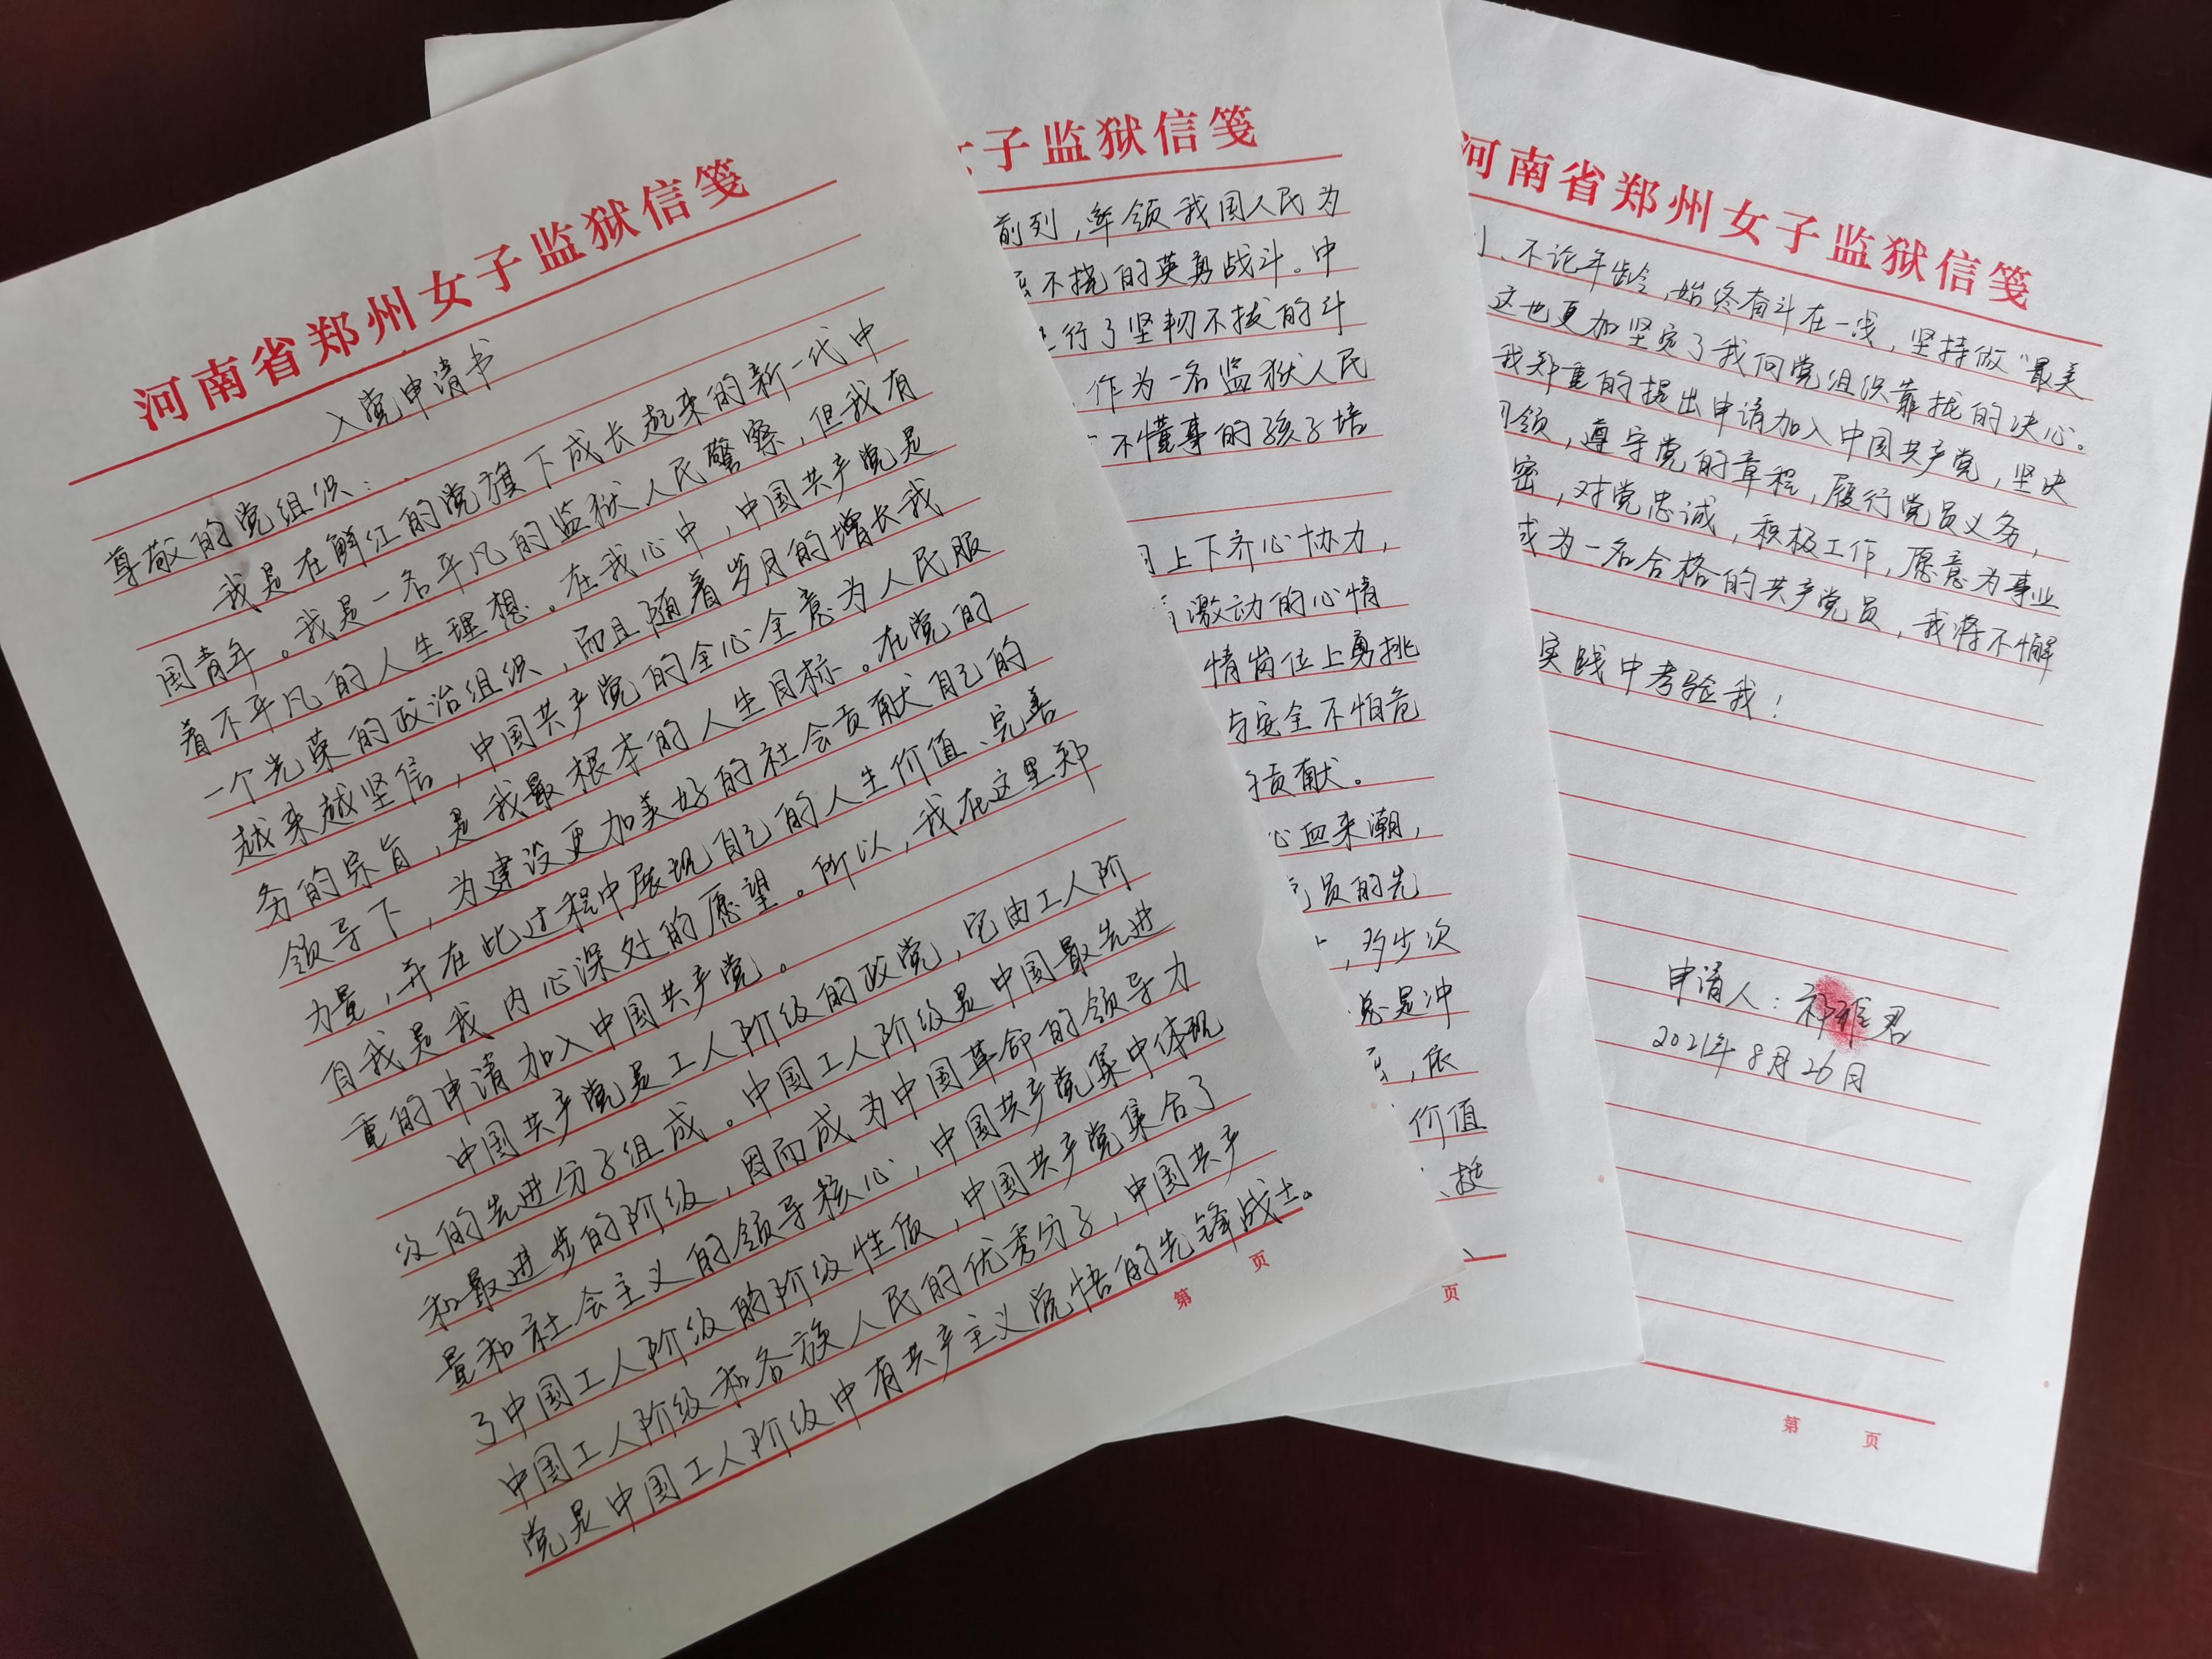 河南省郑州女子监狱信笺
入党申请书
尊敬的党组织：
我是在鲜红的党旗下成长起来的新一代中
国青年。我是一名平凡的监狱人民警察，但我有
着不平凡的人生理想。在我心中，中国共产党是
一个光荣的政治组织，而且随着岁月的增长我
越来越坚信，中国共产党的全心全意为人民服
务的宗旨，是我最根本的人生目标。在党的
领导下，为建设更加美好的社会贡献自己的
力量，并在此过程中展现自己的人生价值、完善
自我是我内心深处的愿望。所以，我在这里郑
重的申请加入中国共产党。
中国共产党是工人阶级的政党，它由工人阶
级的先进分子组成。中国工人阶级是中国最先进
和最进步的阶级，因而成为中国革命的领导力
量和社会主义的领导核心，中国共产党集中体现
了中国工人阶级的阶级性质，中国共产党集合了
中国工人阶级和各族人民的优秀分子，中国共产
党是中国工人阶级中有共产主义觉悟的先锋战士。
第 页
女子监狱信笺
前列，率领我国人民为
不挠的英勇战斗。中
进行了坚韧不拔的斗
作为一名监狱人民
不懂事的孩子培
上下齐心协力，
激动的心情
情岗位上勇挑
与安全不怕危
贡献。
心血来潮，
党员的先
，多少次
总是冲
，依
价值
、挺
页
河南省郑州女子监狱信笺
、不论年龄，始终奋斗在一线，坚持做“最美
这也更加坚定了我向党组织靠拢的决心。
我郑重的提出申请加入中国共产党，坚决
纲领，遵守党的章程，履行党员义务，
密，对党忠诚，积极工作，愿意为事业
成为一名合格的共产党员，我将不懈
实践中考验我！
申请人：祁雅君
2021年8月26日
第 页